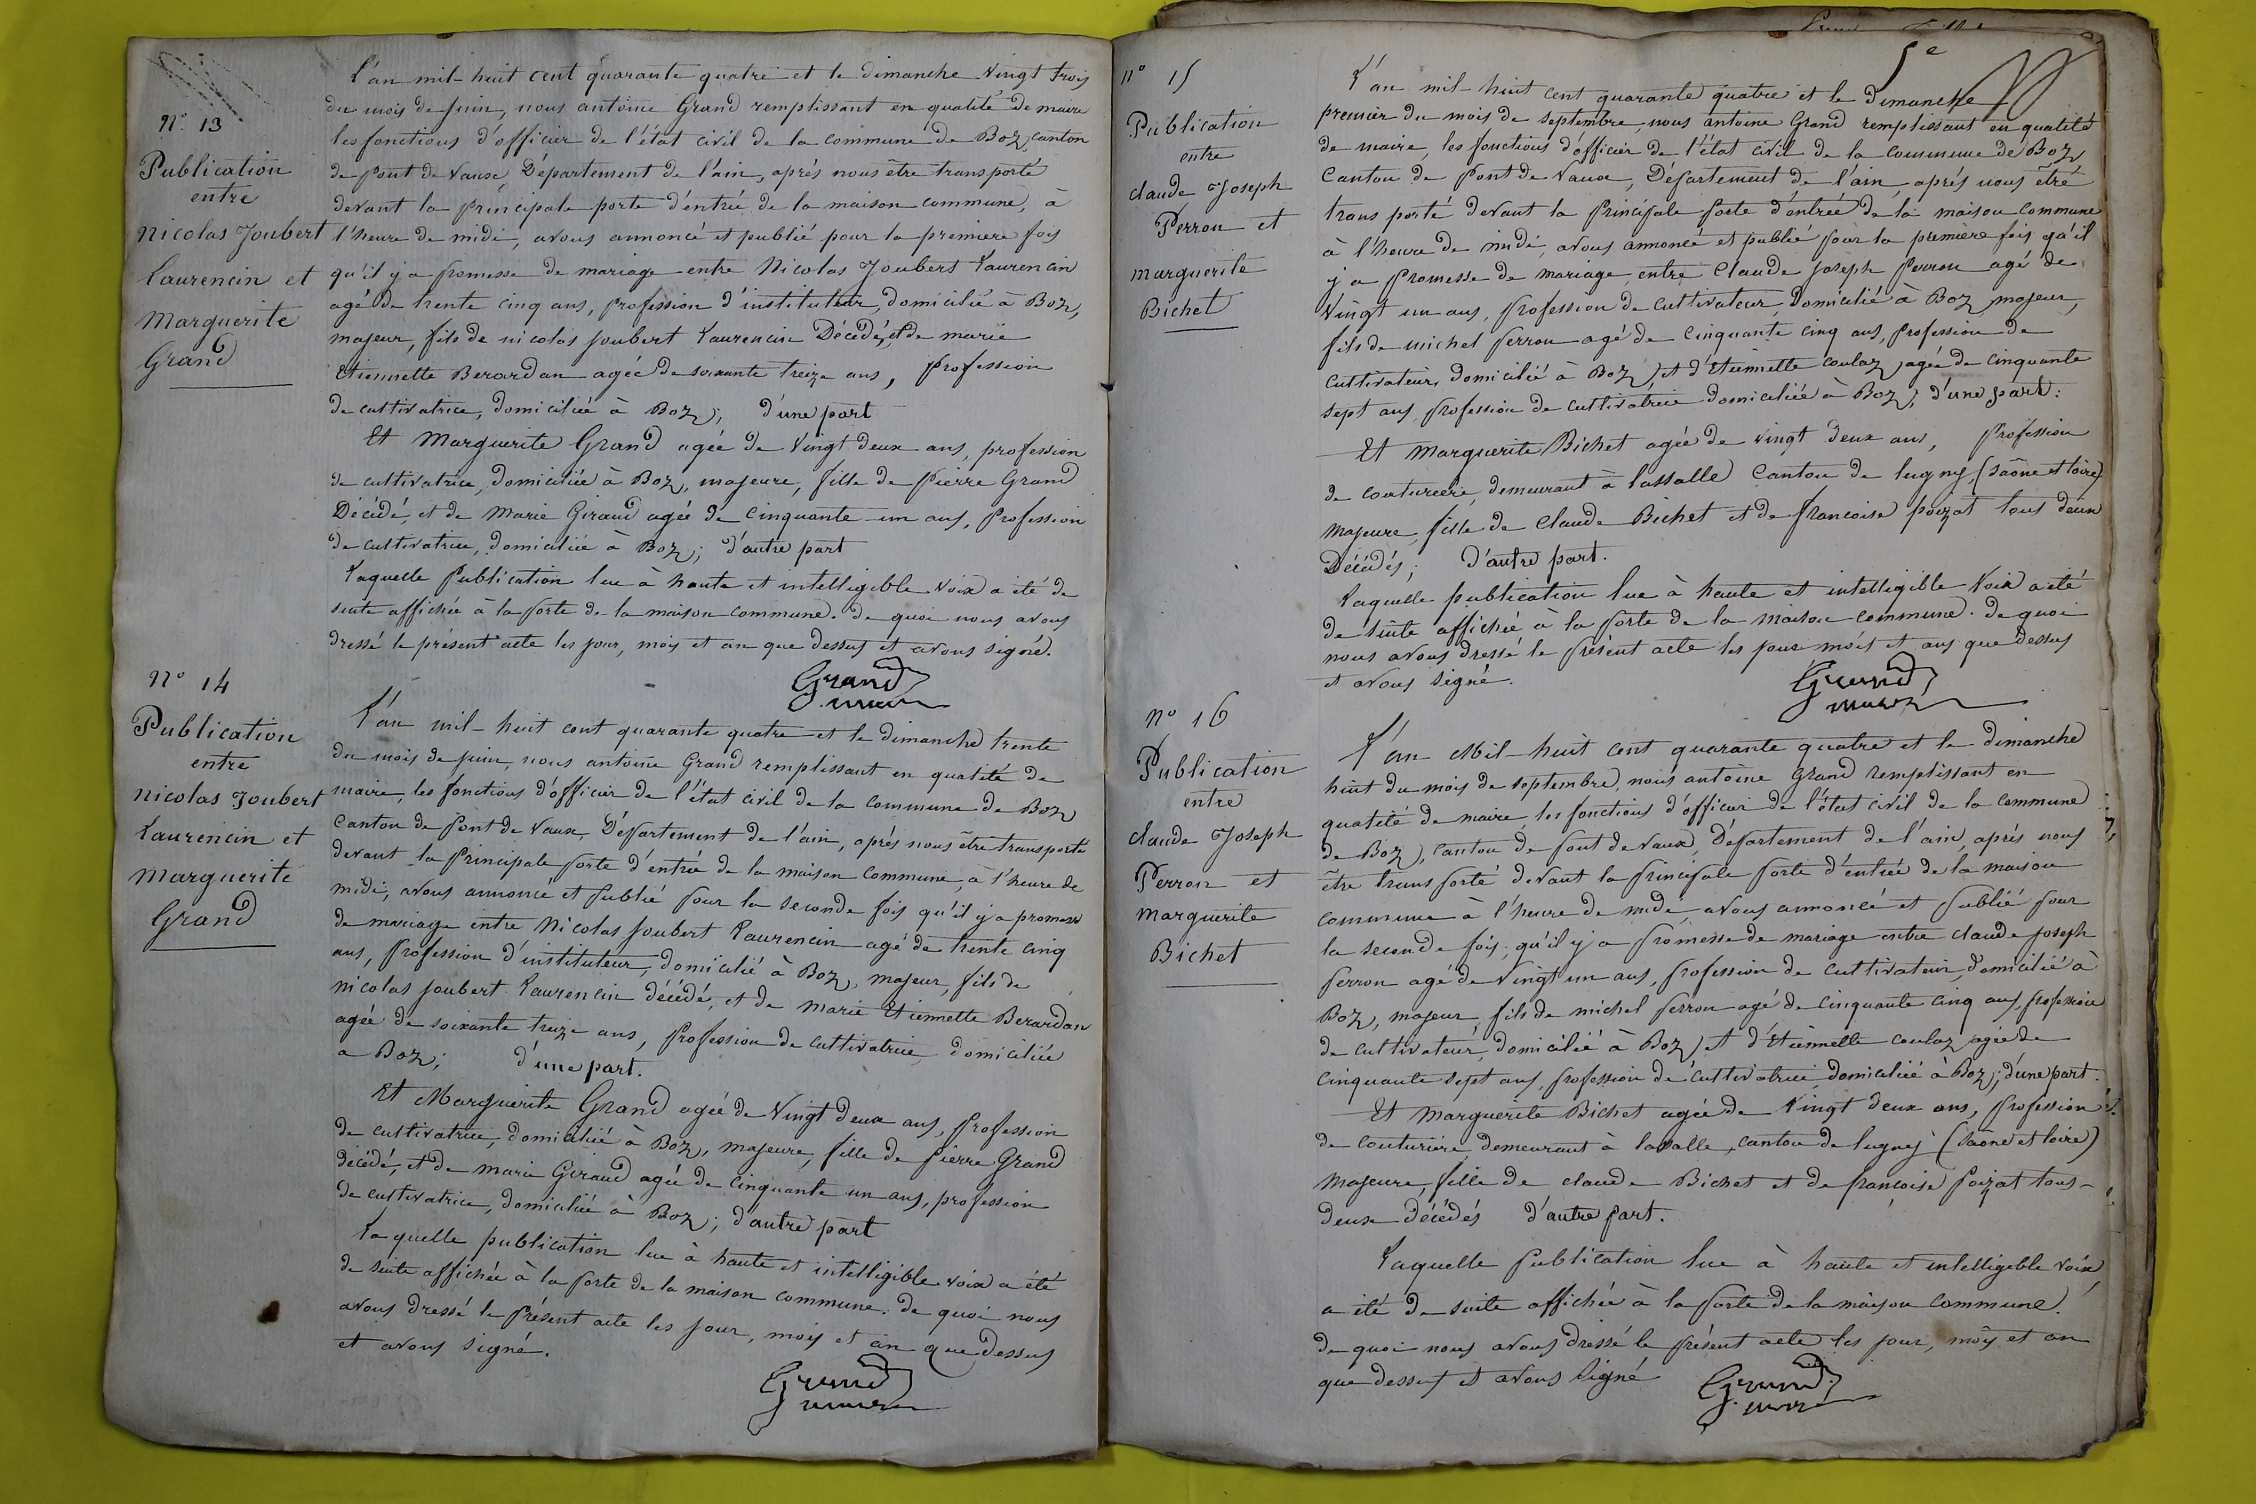 N° 13
Publication
entre
Nicolas Joubert
Laurencin et
Marguerite
Grand
L'an mil-huit cent quarante quatre et le dimanche vingt trois
du mois de juin, nous antoine Grand remplissant en qualité de maire
les fonctions d'officier de l'état civil de la commune de Boz, canton
de pont de vaux, Département de l'ain, après nous être transporté
devant la principale porte d'entrée de la maison commune, à
l'heure de midi, avons annoncé et publié pour la première fois
qu'il y a promesse de mariage entre Nicolas Joubert Laurencin
agé de trente cinq ans, profession d'instituteur, domicilié à Boz,
majeur, fils de nicolas Joubert Laurencin Décédé, et de marie
Etiennette Berardan agée de soixante treize ans, profession
de cultivatrice, domiciliée à Boz; d'une part
Et Marguerite Grand agée de vingt deux ans, profession
de cultivatrice, domiciliée à Boz, majeure, fille de Pierre Grand
Décédé, et de Marie Giraud agée de Cinquante un ans, profession
de cultivatrice, domiciliée à Boz; d'autre part
Laquelle Publication lue à haute et intelligible voix a été de
suite affichée à la porte de la maison commune. de quoi nous avons
dressé le présent acte les jour, mois et an que dessus et avons signé.
Grand
maire
N° 14
Publication
entre
Nicolas Joubert
Laurencin et
Marguerite
Grand
L'an mil-huit cent quarante quatre et le dimanche trente
du mois de juin, nous antoine Grand remplissant en qualité de
maire, les fonctions d'officier de l'état civil de la commune de Boz
Canton de Pont de Vaux, Département de l'ain, après nous être transporté
devant la Principale porte d'entrée de la maison commune, à l'heure de
midi, avons annoncé et publié pour la seconde fois qu'il y a promesse
de mariage entre Nicolas Joubert Laurencin agé de trente cinq
ans, profession d'instituteur, domicilié à Boz, majeur, fils de
nicolas Joubert Laurencin décédé, et de Marie Etiennette Berardan
agée de soixante treize ans, profession de cultivatrice, domiciliée
a Boz; d'une part.
Et Marguerite Grand agée de Vingt deux ans, profession
de cultivatrice, domiciliée à Boz, majeure, fille de Pierre Grand
décédé, et de marie Giraud agée de Cinquante un ans, profession
de cultivatrice, domiciliée à Boz; d'autre part
La quelle publication lue à haute et intelligible voix a été
de suite affichée à la porte de la maison commune. de quoi nous
avons dressé le présent acte les jour, mois et an que dessus
et avons signé.
Grand
maire
5e
N° 15
Publication
entre
claude Joseph
Perron et
marguerite
Bichet
L'an mil-huit cent quarante quatre et le Dimanche
premier du mois de septembre, nous antoine Grand remplissant en qualité
de maire, les fonctions d'officier de l'état civil de la Commune de Boz,
Canton de Pont de Vaux, Département de l'ain, après nous être
trans porté devant la Principale porte d'entrée de la maison Commune
à l'heure de midi, avons annoncé et publié pour la première fois qu'il
y a Promesse de mariage entre Claude Joseph Perron agé de
Vingt un ans, profession de cultivateur, domicilié à Boz, majeur,
fils de michel Perron agé de Cinquante cinq ans, profession de
cultivateur, domicilié à Boz, et d'Etiennette coulaz agée de cinquante
sept ans, profession de cultivatrice domiciliée à Boz, d'une part.
Et Marguerite Bichet agée de vingt deux ans, profession
de couturière, demeurant à lassalle Canton de lugny, (Saône et loire)
majeure, fille de Claude Bichet et de francoise poizat tous deux
Décédés; d'autre part.
Laquelle publication lue à haute et intelligible voix a été
de suite affichée à la porte de la maison commune. de quoi
nous avons dressé le présent acte les jour mois et ans que dessus
et avons signé.
Grand
maire
N° 16
Publication
entre
claude Joseph
Perron et
marguerite
Bichet
L'an Mil-huit cent quarante quatre et le dimanche
huit du mois de septembre, nous antoine Grand remplissant en
qualité de maire, les fonctions d'officier de l'état civil de la commune
de Boz, canton de Pont de Vaux, Département de l'ain, après nous
être trans porté devant la principale porte d'entrée de la maison
commune à l'heure de midi, avons annoncé et publié pour
la seconde fois, qu'il y a promesse de mariage entre claude Joseph
Perron agé de Vingt un ans, profession de cultivateur, domicilié à
Boz, majeur, fils de michel Perron agé de Cinquante cinq ans, profession
de cultivateur, domicilié à Boz, et d'Etiennette coulaz agée de
Cinquante sept ans, profession de cultivatrice domiciliée à Boz; d'une part.
Et Marguerite Bichet agée de Vingt deux ans, profession
de couturière, demeurant à lasalle, canton de lugny (Saône et loire)
majeure, fille de claude Bichet et de françoise Poizat tous-
deux décédés d'autre part.
Laquelle publication lue à haute et intelligible voix
a été de suite affichée à la porte de la maison commune.
de quoi nous avons dressé le présent acte les jour, mois et an
que dessus et avons signé
Grand
maire